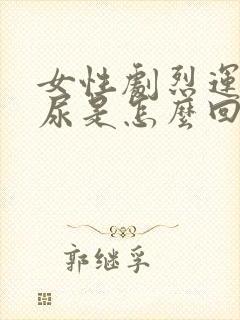 女性劇烈運
尿是怎麼回
郭继孚